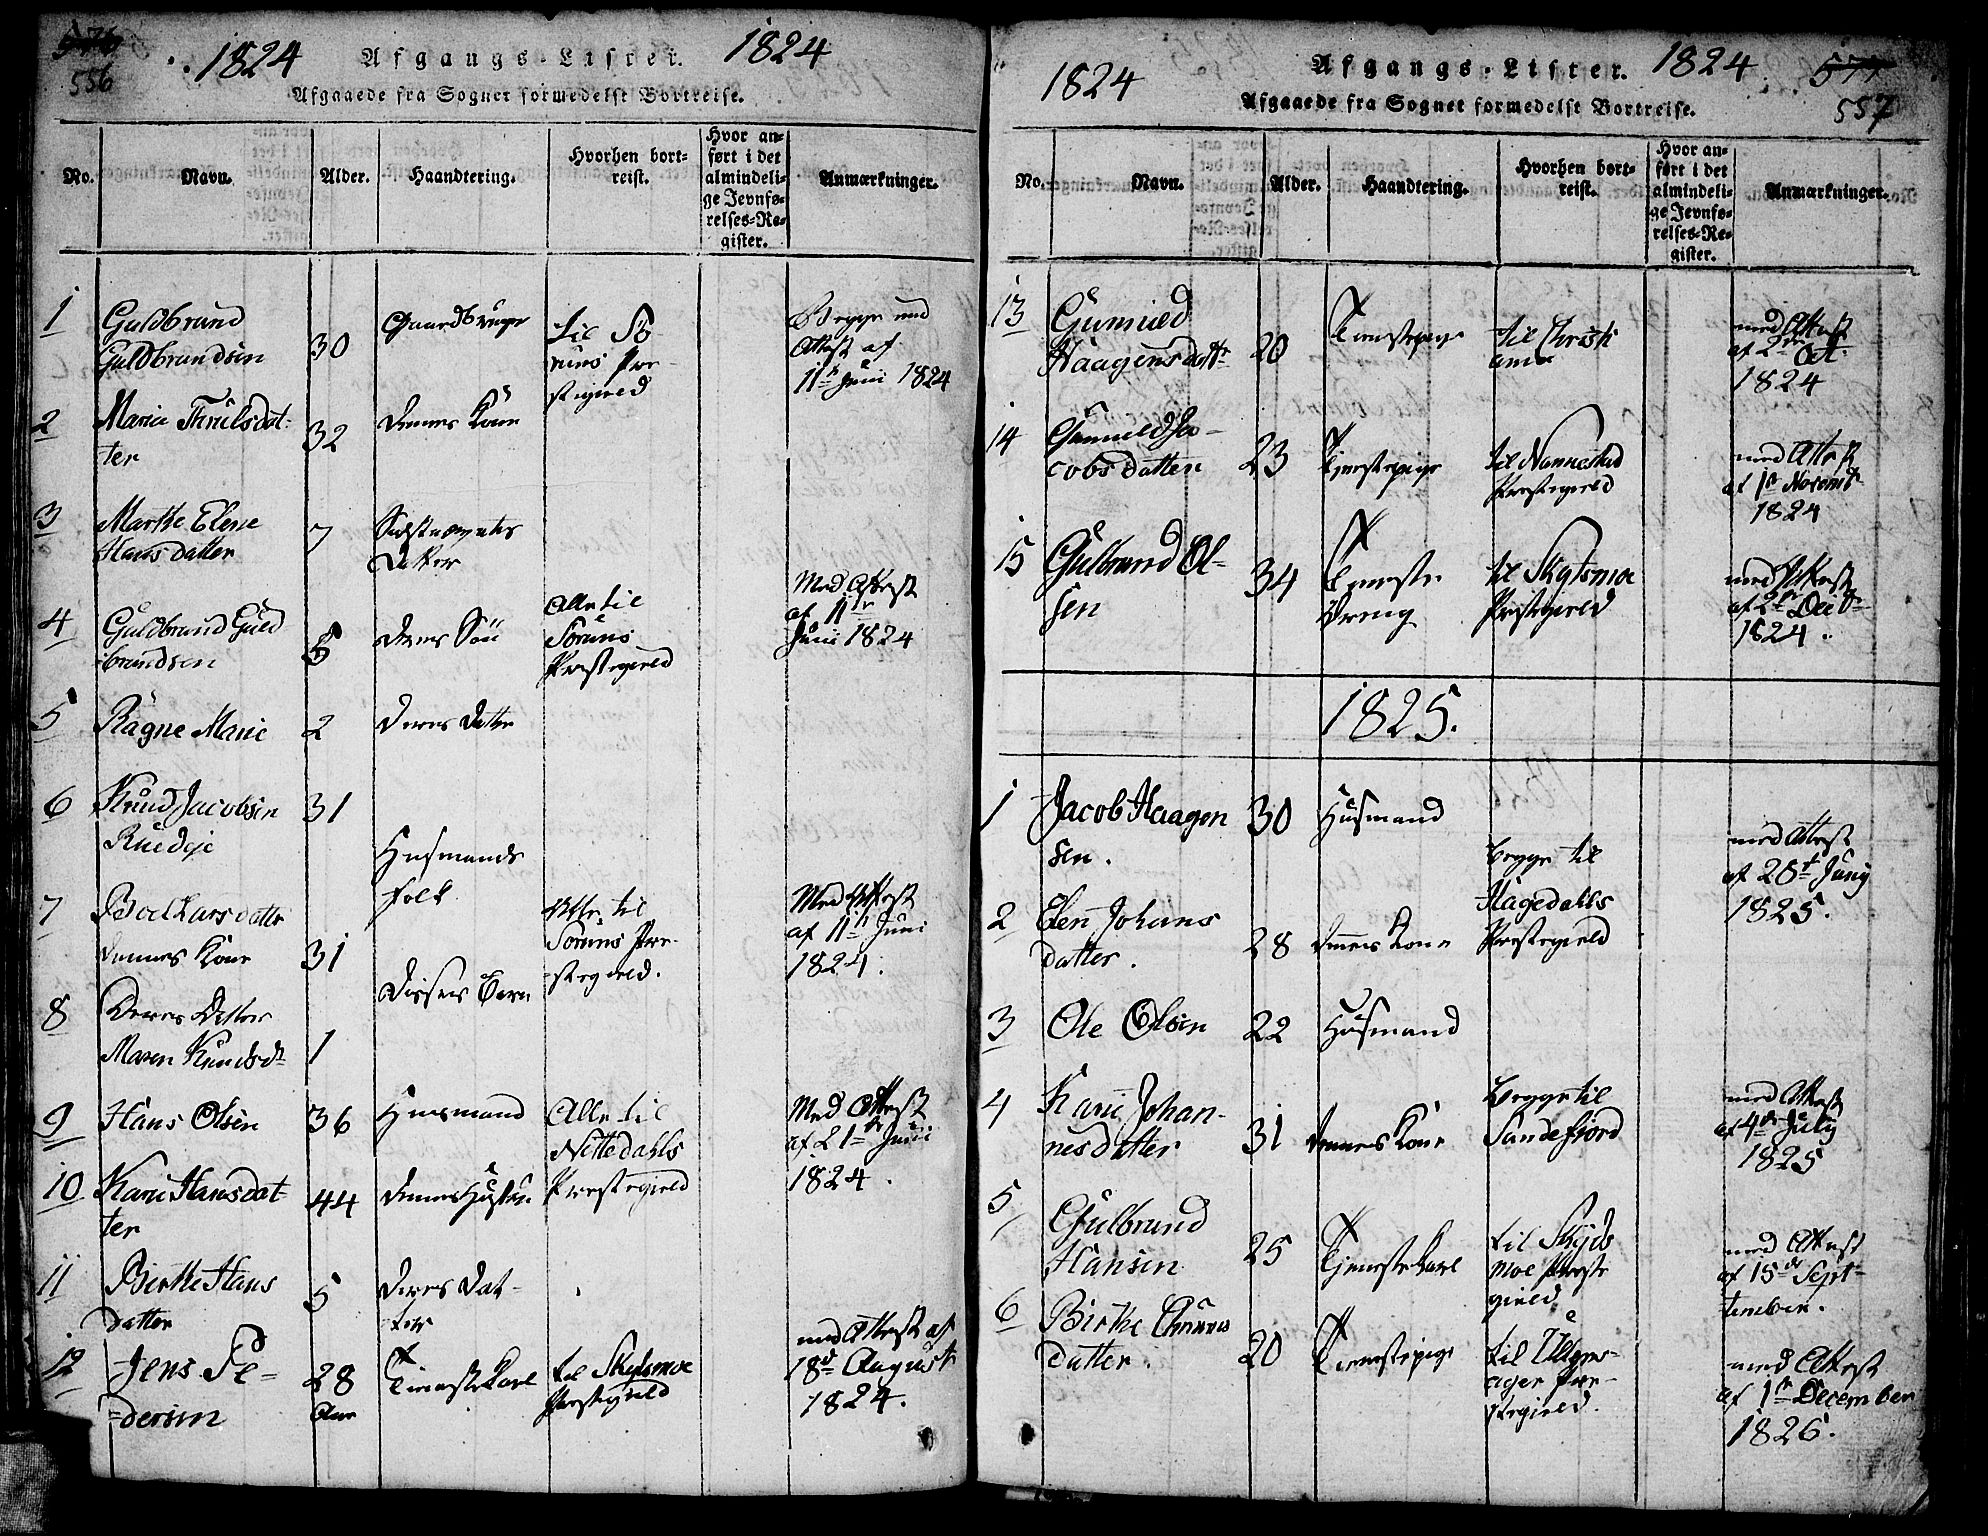 576
556
1824
Afgangs-Lister.
1824
Afgaaede fra Sognet formedelst Bortreise.
No.
Navn.
Alder.
Haandtering.
Hvorhen bort-
reist.
Hvor an-
ført i det
almindeli-
ge Jevnfø-
relses-Re-
gister.
Anmærkninger.
1
Guldbrand
Guldbrandsen
30
Gaardbruger
til Sö-
rums Præ-
stegield
Begge med
Attest af
11te Juni 1824
2
Marie Thrulsdat-
ter
32
dennes Kone
3
Marthe Elene
Hansdatter
7
Sidstnævntes
Datter
4
Guldbrand Guld
brandsen
5
deres Sön
Alle til
Sorums
Præstegield
Med Attest
af 11te
Juni 1824
5
Ragne Marie
2
deres Datter
6
Knud Jacobsen
31
Husmands
folk
7
Boel Larsdatter
dennes Kone
31
Alle til
Sorums Præ-
stegield.
Med Attest
af 11te Juni
1824.
8
Deres Datter
Maren Knudsdr
1
Disses Barn
9
Hans Olsen
36
Huusmand
Alle til
Nittedahls
Præstegield
Med Attest
af 21de Juni
1824.
10
Kari Hansdat-
ter
44
dennes Hustru
11
Birthe Hans
datter
5
deres Dat-
ter
12
Jens Pe-
dersen
28
Aar
Tienestekarl
til Skydsmoe
Præstegield
med Attest af
18de August
1824.
1824
Afgangs-Lister.
1824
577
557
Afgaaede fra Sognet formedelst Bortreise.
No.
Navn.
Alder.
Haandtering.
Hvorhen bort-
reist.
Hvor an-
ført i det
almindeli-
ge Jevnfø-
relses-Re-
gister.
Anmærkninger.
13
Gunnild
Haagensdattr
20
Tienestepige
til Christi
ania
med Attest
af 2den Oct.
1824
14
Gunnild Ja-
cobsdatter
23
Tienestepige
til Nannestad
Præstegield
med Attest
af 1te Novembr
1824
15
Gulbrand Ol-
sen
34
Tieneste
Dreng
til Skytsmoe
Præstegield
med Attest
af 2den Decbr
1824.
1825.
1
Jacob Haagen
sen.
30
Husmand
begge til
Hagedahls
Præstegield
med Attest
af 28t Juny
1825.
2
Elen Johans
datter.
28
dennes Kone
3
Ole Olsen
22
Husmand
4
Kari Johan-
nesdatter
31
dennes Kone
begge til
Sandefjord
med Attest
af 4de July
1825
5
Gulbrand
Hansen
25
Tjenestekarl
til Skyds
moe Præste
gield
med Attest
af 15de Sept-
tember.
6
Birthe
datter.
20
Tienestepige
til Ullens-
ager Præ-
stegield.
med Attest
af 1te December
1826.